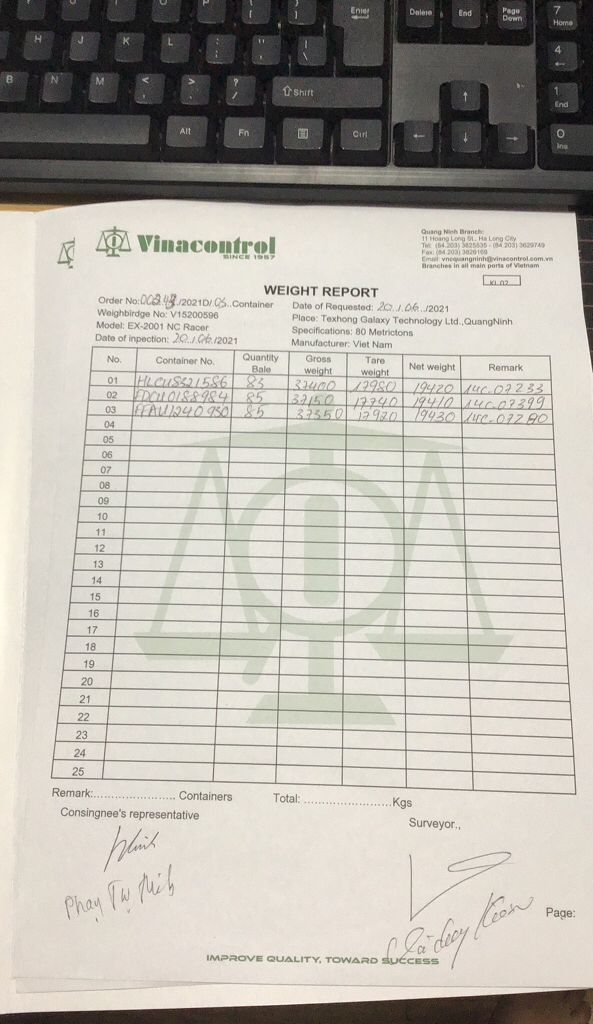 Enter
Delete
End
Page Down
7 Home
H
J
K
L
4
B
N
M
Shift
1 End
Alt
Fn
Ctrl
0 Ins
Vinacontrol
SINCE 1957
Quang Ninh Branch:
11 Hoang Long St., Ha Long City
Tel: (84.203) 3825535 - (84.203) 3629749
Fax: (84.203) 3826169
Email: vncquangninh@vinacontrol.com.vn
Branches in all main ports of Vietnam
KL.02
WEIGHT REPORT
Order No: /2021D/.05..Container
Date of Requested: 20../.06../2021
Weighbirdge No: V15200596
Place: Texhong Galaxy Technology Ltd.,QuangNinh
Model: EX-2001 NC Racer
Specifications: 80 Metrictons
Date of inpection: 20./.06./2021
Manufacturer: Viet Nam
No. Container No. Quantity Bale Gross weight Tare weight Net weight Remark
01 HLCU8321586 83 37400 17980 19420 14C-07233
02 85 37150 17740 19410 14C-07399
03 85 37350 17920 19430 14C-07280
04
05
06
07
08
09
10
11
12
13
14
15
16
17
18
19
20
21
22
23
24
25
Remark:........................ Containers Total: ..........................Kgs
Consingnee's representative
Surveyor.,
Page:
IMPROVE QUALITY, TOWARD SUCCESS